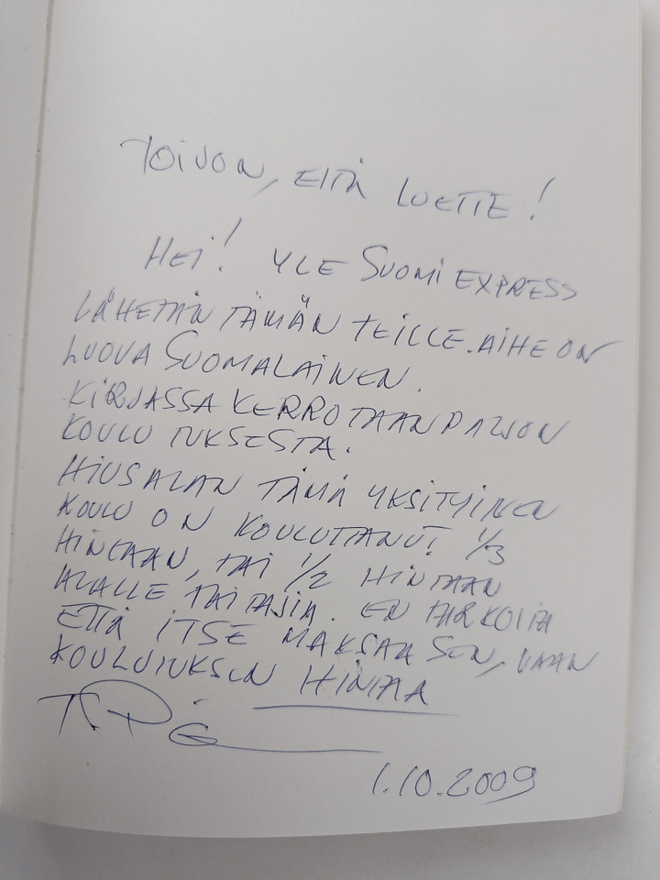 TOIVON, ETTÄ LUETTE!
HEI! YLE SUOMI EXPRESS
LÄHETÄN TÄMÄN TEILLE. AIHE ON
LUOVA SUOMALAINEN.
KIRJASSA KERROTAAN PALJON
KOULUTUKSESTA.
HIUSALAN TÄMÄ YKSITYINEN
KOULU ON KOULUTTANUT 1/3
HINTAAN, TAI 1/2 HINTAAN
ALALLE TAITAJIA. EN TARKOITA
ETTÄ ITSE MAKSAA SEN, VAAN
KOULUTUKSEN HINTAA
1.10.2009